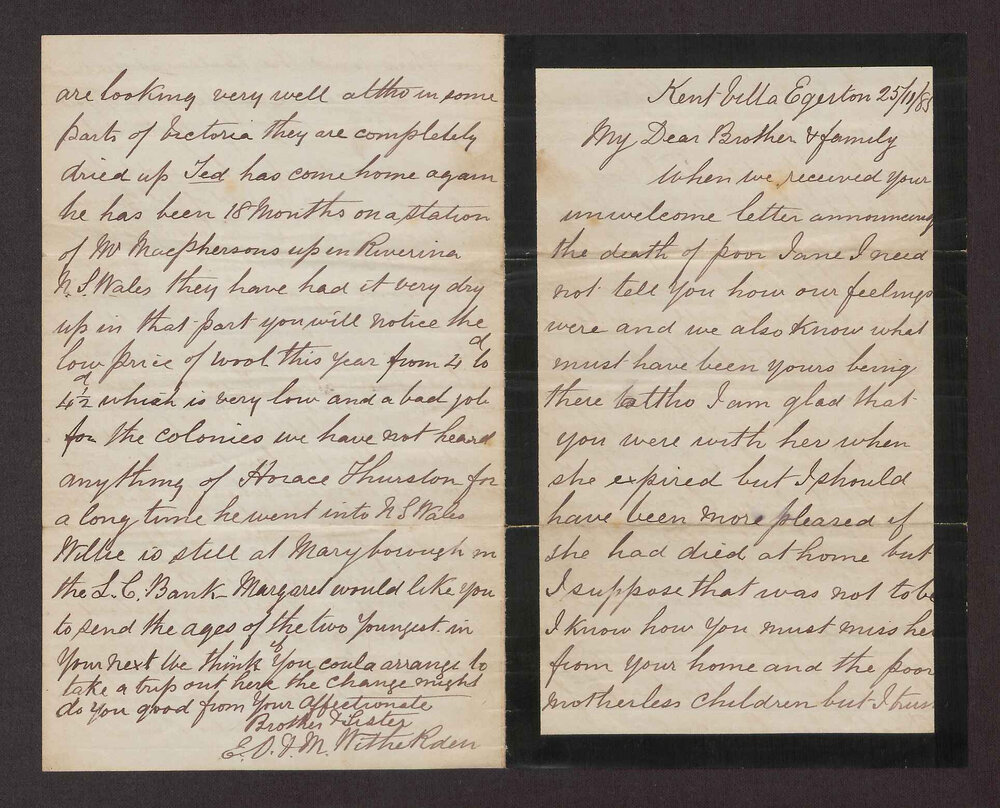 Kent Villa Egerton 25/11/85
My Dear Brother & family
When we received your
unwelcome letter announcing
the death of poor Jane I need
not tell you how our feelings
were and we also know what
must have been yours being
there altho I am glad that
you were with her when
she expired but I should
have been more pleased if
she had died at home but
I suppose that was not to be
I know how you must miss her
from your home and the poor
motherless children but I trus
are looking very well altho in some
parts of Victoria they are completely
dried up Ted has come home again
he has been 18 Months on a station
of Mr MacPhersons up in Riverina
N. S. Wales they have had it very dry
up in that part you will notice the
low price of wool this year from 4d to
4½d which is very low and a bad job
for the colonies we have not heard
anything of Horace Thurston for
a long time he went into N S Wales
Willie is still at Maryborough in
the L. C. Bank Margaret would like you
to send the ages of the two Youngest in
Your next We think if You could arrange to
take a trip out here the change might
do you good from Your affectionate
Brother & Sister
E. O. & M. Witherden